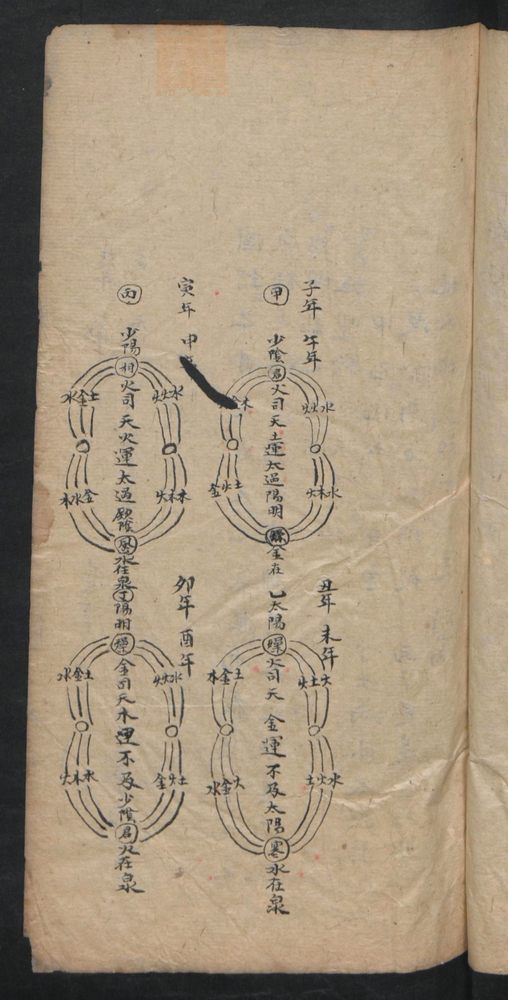 子年 午年
甲 少陰君火司天土運太過陽明燥金在
水火火
木金
水木火
土火金
丑年 未年
乙太陽燥火司天 金運不及太陽寒水在泉
火土火
土金木
水火土
火金水
寅年 申
丙 少陽相火司天火運太過厥陰風水在泉
水火火
土金水
木木火
金水木
卯年 酉年
丁陽明燥金司天木運不及少陰君火在泉
水火火
土金水
土火金
水木火